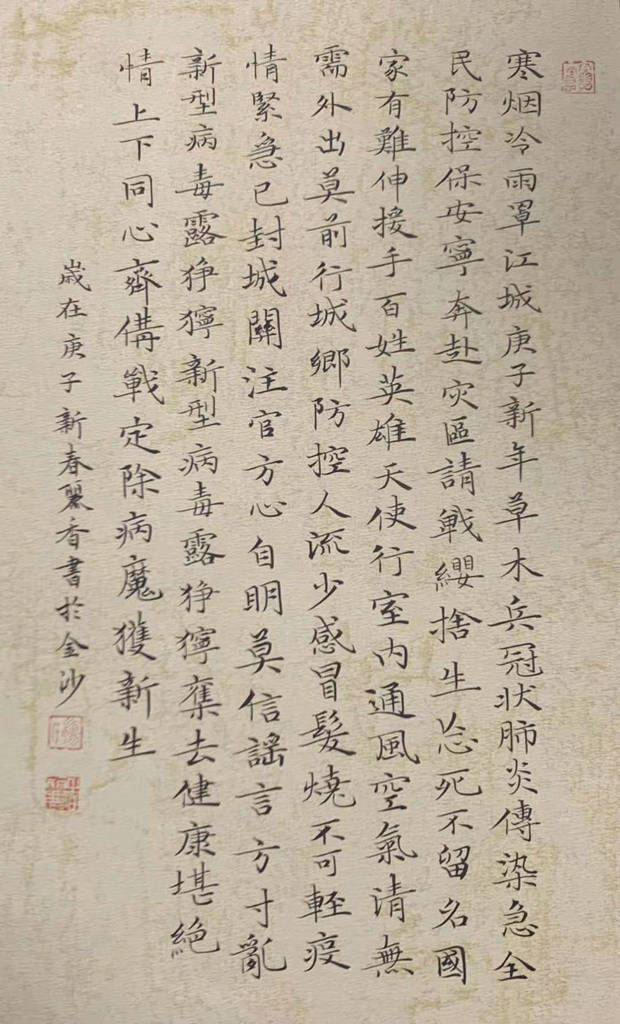 寒烟冷雨罩江城庚子新年草木兵冠状肺炎傳染急全
民防控保安寧奔赴灾區請戰纓捨生忘死不留名國
家有難伸援手百姓英雄天使行室内通風空氣清無
需外出莫前行城鄉防控人流少感冒髮燒不可輕疫
情緊急已封城關注官方心自明莫信謡言方寸亂
新型病毒露狰獰新型病毒露狰獰奪去健康堪絶
情上下同心齊備戰定除病魔獲新生
歲在庚子新春麗香書於金沙